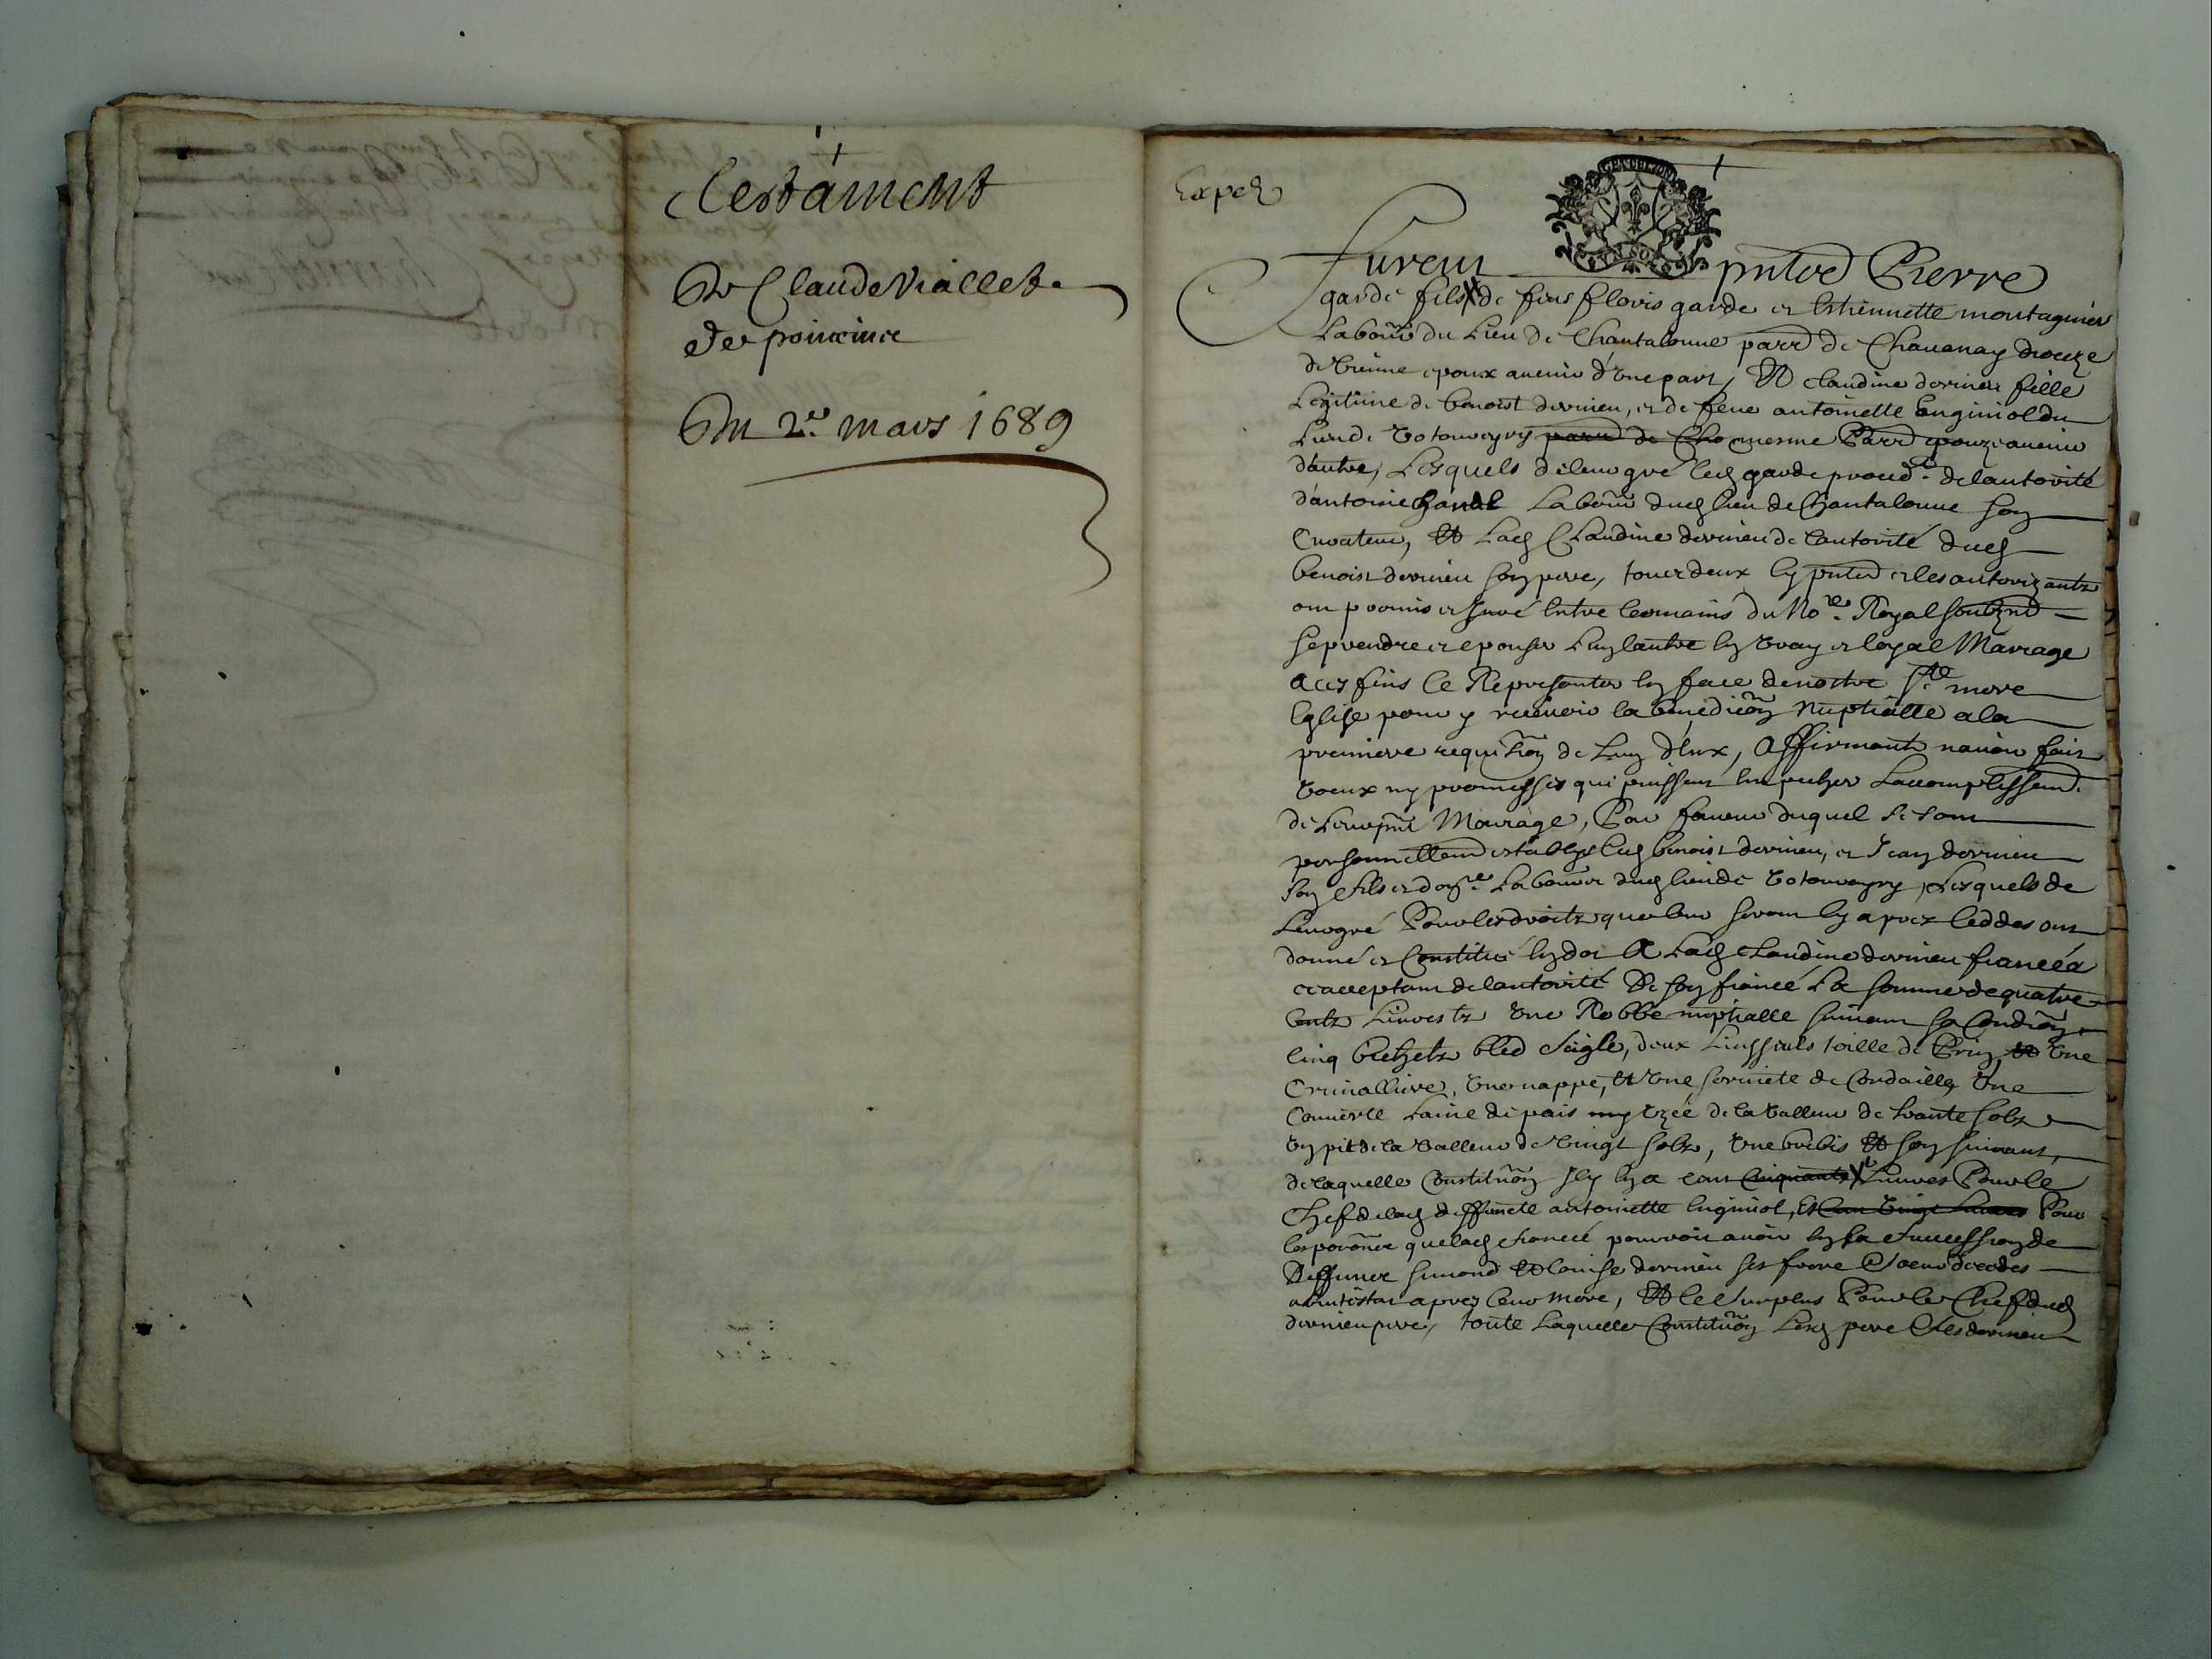 Testament
De Claude Viallet
de poincince
Du 2e mars 1689
Exped
Furent pntz Pierre
garde fils de feus flovis garde et Estiennette montagnier
Labour du Lieu de Chantalouue parr de Chauanay dioceze
de Vienne epoux auenir d'Une part, Et claudine dervieu fille
Legitime de benoist dervieu, et de feue antoinette Enginiol du
Lieu de Votouveyry parr de Cha mesme Parr epouze auenir
d'autre, Lesquels de leur gré led garde proced. de lautorité
d'antoine Labour dud lieu de Chantalouue son
Curateur, Et Lad Claudine dervieu de lautorité dud
benoist dervieu son pere, tous deux Cy pntz et les autorizantz
ont promis et Juré Entre les mains du No.re Royal soubzné
se prendre et epouser L'un lautre En Vray et loyal Mariage
a ces fins Se Representer En face de nostre S.te mere
Eglise pour y receuoir la benediõn Nuptialle a la
premiere requisiõn de L'un d'Eux, Affirmantz n'auoir fait
Voeux ny promesses qui puissent Empecher Laccomplissem.
de Leur pnt Mariage, Par faueur duquel Se sont
personnellem establys led benoist dervieu, et Jean dervieu
son fils et dor.e Laboure dud lieu de Votouveyry, Lesquels de
Leur gré Pour les droits que leur seront Cy aprez ceddes ont
donné et Constitué En dot A Lad Claudine dervieu fiancéé
acceptant de lautorité De son fiancé La somme de quatre
Centz Liures tz Une Robbe nuptialle suiuant sa Condiõn
Cinq bichetz bled Seigle, deux Linsseuls toille de Prin, Et Une
Cruvalliere, Une nappe, Et Une seruiete de Cordaille, Une
Couuerte Laine de pais my Uzée de la Valleur de trante solz
Un pit de la Valleur de Vingt solz, Une brebis Et son suiuant,
de laquelle Constituõn Il y En a cent Cinquante Liures Pour le
Chef de lad deffuncte antoinette Enginiol, Et Cent Vingt Liures Pour
les que lad fiancée pourroit auoir En la Succession de
Deffunct simond Et Louise dervieu ses frere & soeur decedes
abintestat aprez Leur Mere, Et le Surplus Pour le Chef dud
dervieu pere, toute Laquelle Constituõn Lesd pere & fils dervieu